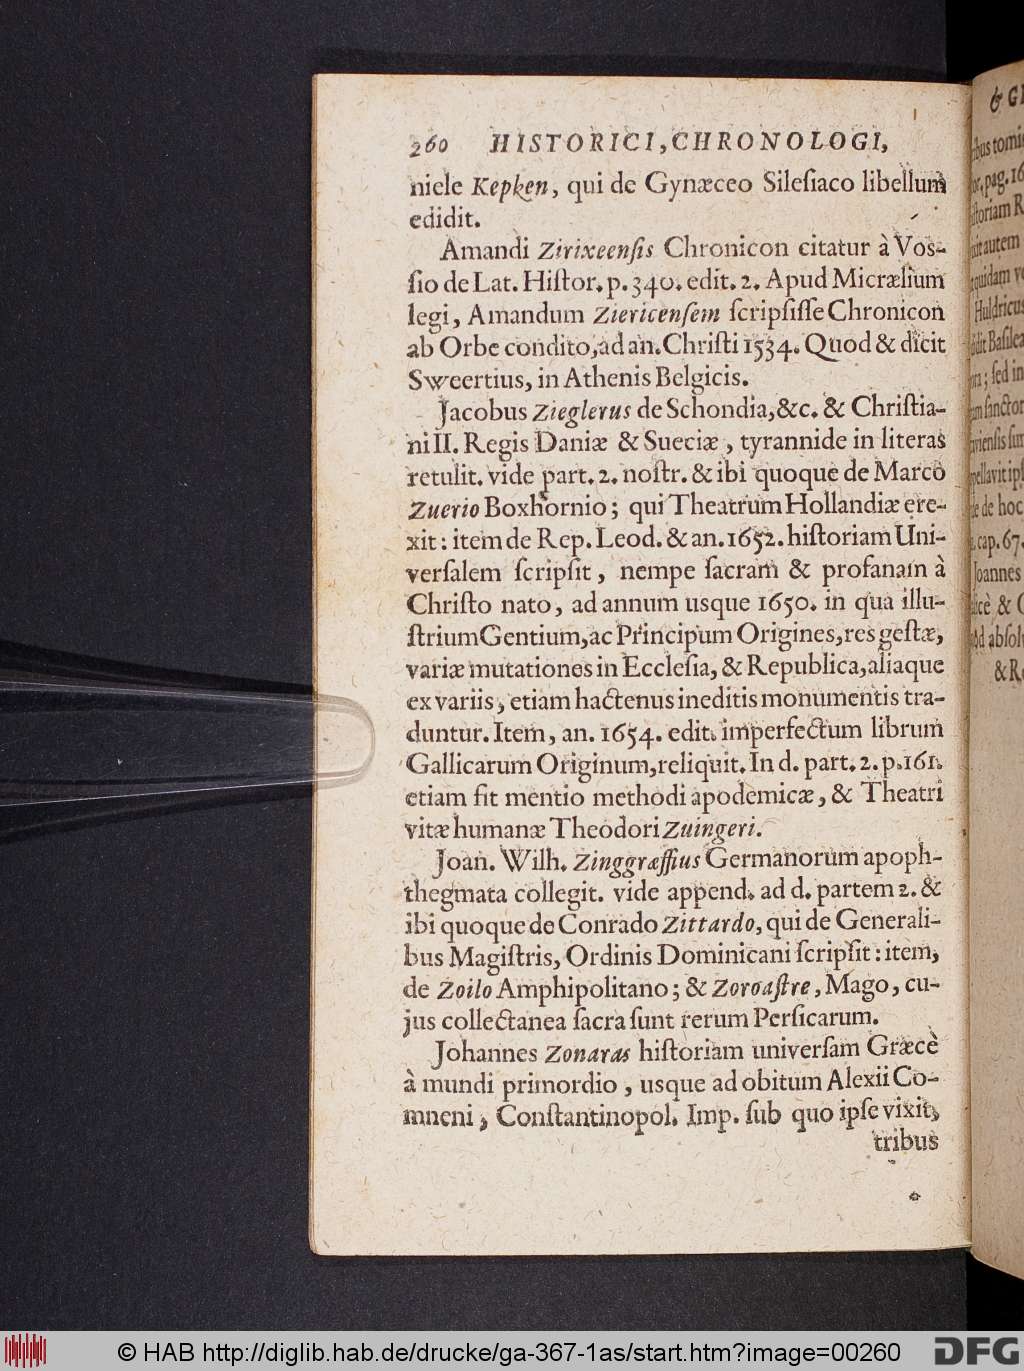 260 HISTORICI, CHRONOLOGI,
niele Kepken, qui de Gynæceo Sileſiaco libellum
edidit.
Amandi Zirixeenſis Chronicon citatur à Voſ-
ſio de Lat. Hiſtor. p. 340. edit. 2. Apud Micrælium
legi, Amandum Ziericenſem ſcripſiſſe Chronicon
ab Orbe condito, ad an. Chriſti 1534. Quod & dicit
Sweertius, in Athenis Belgicis.
Jacobus Zieglerus de Schondia, &c. & Chriſtia-
ni II. Regis Daniæ & Sueciæ, tyrannide in literas
retulit. vide part. 2. noſtr. & ibi quoque de Marco
Zuerio Boxhornio; qui Theatrum Hollandiæ ere-
xit: item de Rep. Leod. & an. 1652. hiſtoriam Uni-
verſalem ſcripſit, nempe ſacram & profanam à
Chriſto nato, ad annum usque 1650. in qua illu-
ſtrium Gentium, ac Principum Origines, res geſtæ,
variæ mutationes in Eccleſia, & Republica, aliaque
ex variis, etiam hactenus ineditis monumentis tra-
duntur. Item, an. 1654. edit. imperfectum librum
Gallicarum Originum, reliquit. In d. part. 2. p. 161.
etiam fit mentio methodi apodemicæ, & Theatri
vitæ humanæ Theodori Zuingeri.
Joan. Wilh. Zinggræſſius Germanorum apoph-
thegmata collegit. vide append. ad d. partem 2. &
ibi quoque de Conrado Zittardo, qui de Generali-
bus Magiſtris, Ordinis Dominicani ſcripſit: item,
de Zoilo Amphipolitano; & Zoroaſtre, Mago, cu-
jus collectanea ſacra ſunt rerum Perſicarum.
Johannes Zonaras hiſtoriam univerſam Græcè
à mundi primordio, usque ad obitum Alexii Co-
mneni, Conſtantinopol. Imp. ſub quo ipſe vixit,
tribus
& G
tomi
pag. 16
R
autem
quidam
Huldricus
Baſilea
; ſed in
ſanctor
de hoc
cap. 67.
Joannes
&
abſol
&
© HAB http://diglib.hab.de/drucke/ga-367-1as/start.htm?image=00260
DFG